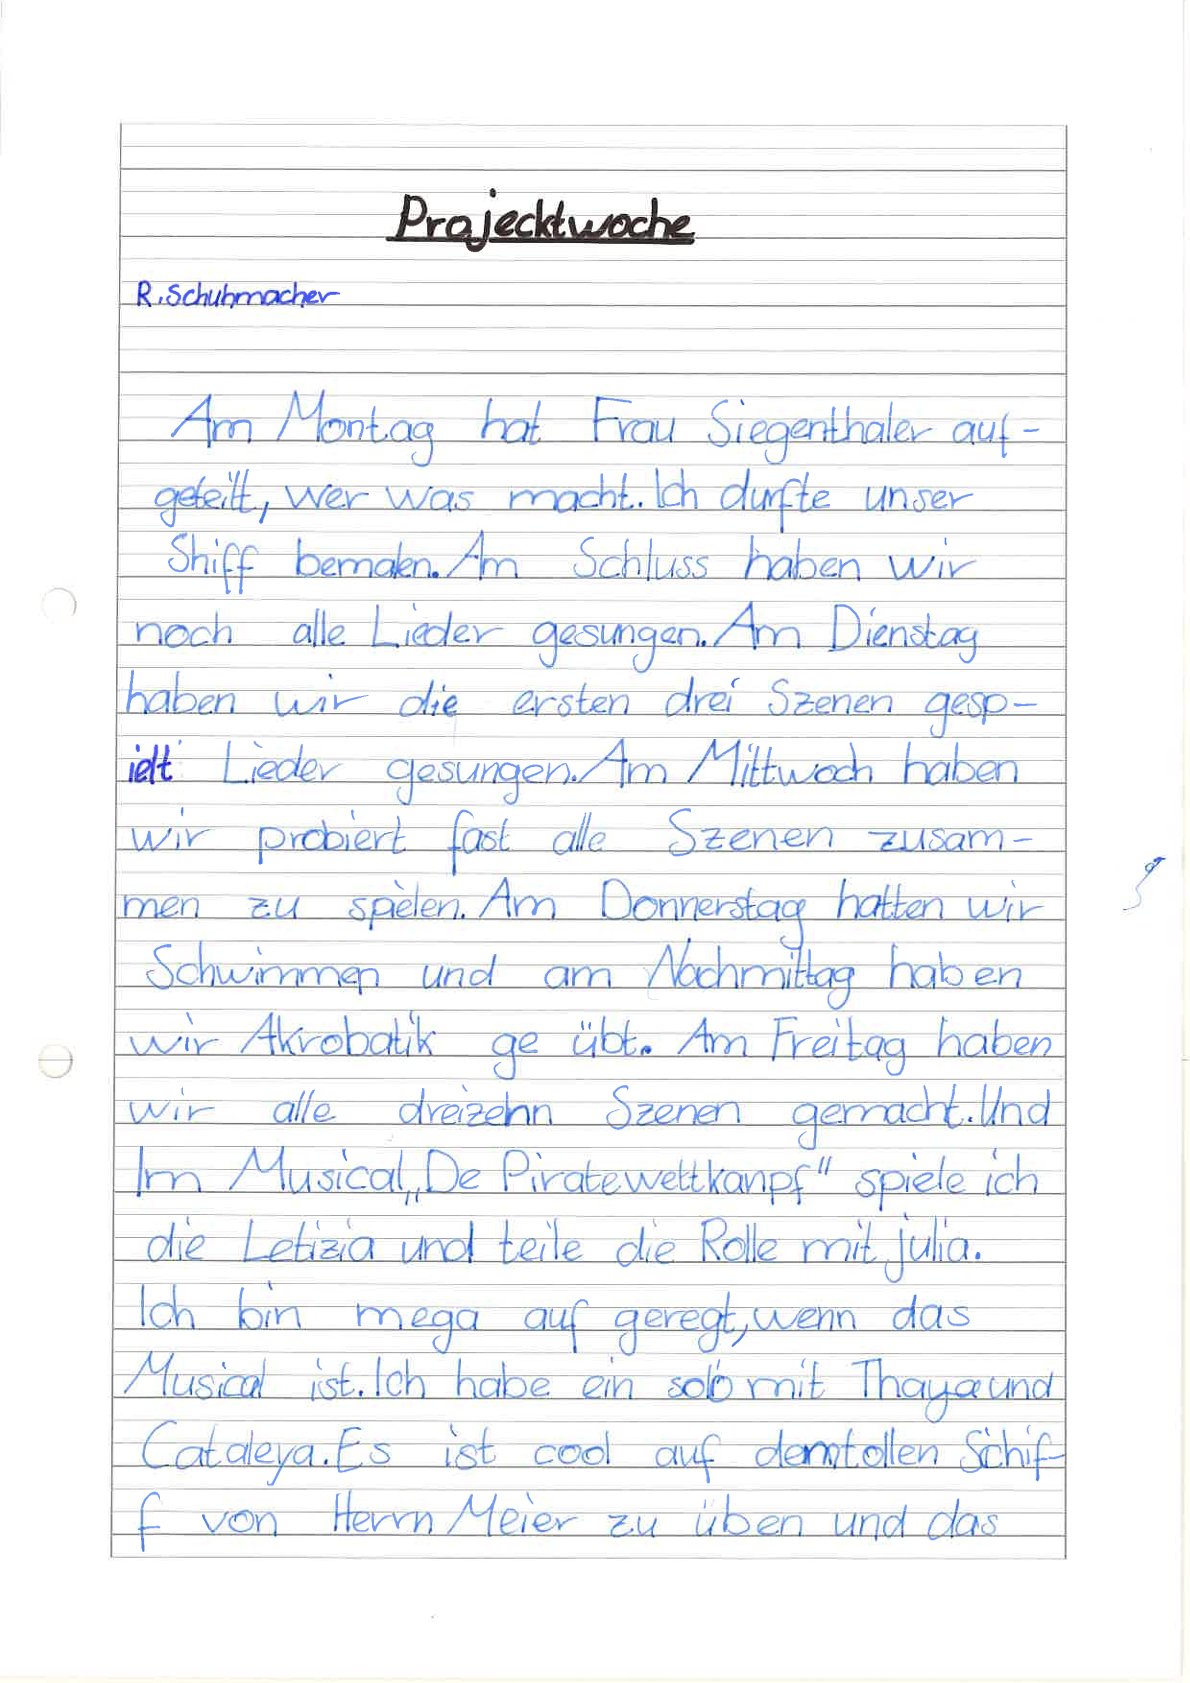 Projecktwoche
R. Schuhmacher
Am Montag hat Frau Siegenthaler auf-
geteilt, wer was macht. Ich durfte unser
Shiff bemalen. Am Schluss haben wir
noch alle Lieder gesungen. Am Dienstag
haben wir die ersten drei Szenen gesp-
ielt Lieder gesungen. Am Mittwoch haben
wir probiert fast alle Szenen zusam-
men zu spielen. Am Donnerstag hatten wir
Schwimmen und am Nachmittag haben
wir Akrobatik ge übt. Am Freitag haben
wir alle dreizehn Szenen gemacht. Und
Im Musical „De Piratewettkanpf" spiele ich
die Letizia und teile die Rolle mit julia.
Ich bin mega auf geregt, wenn das
Musical ist. Ich habe ein solo mit Thaya und
Cataleya. Es ist cool auf dem tollen Schif-
f von Herrn Meier zu üben und das